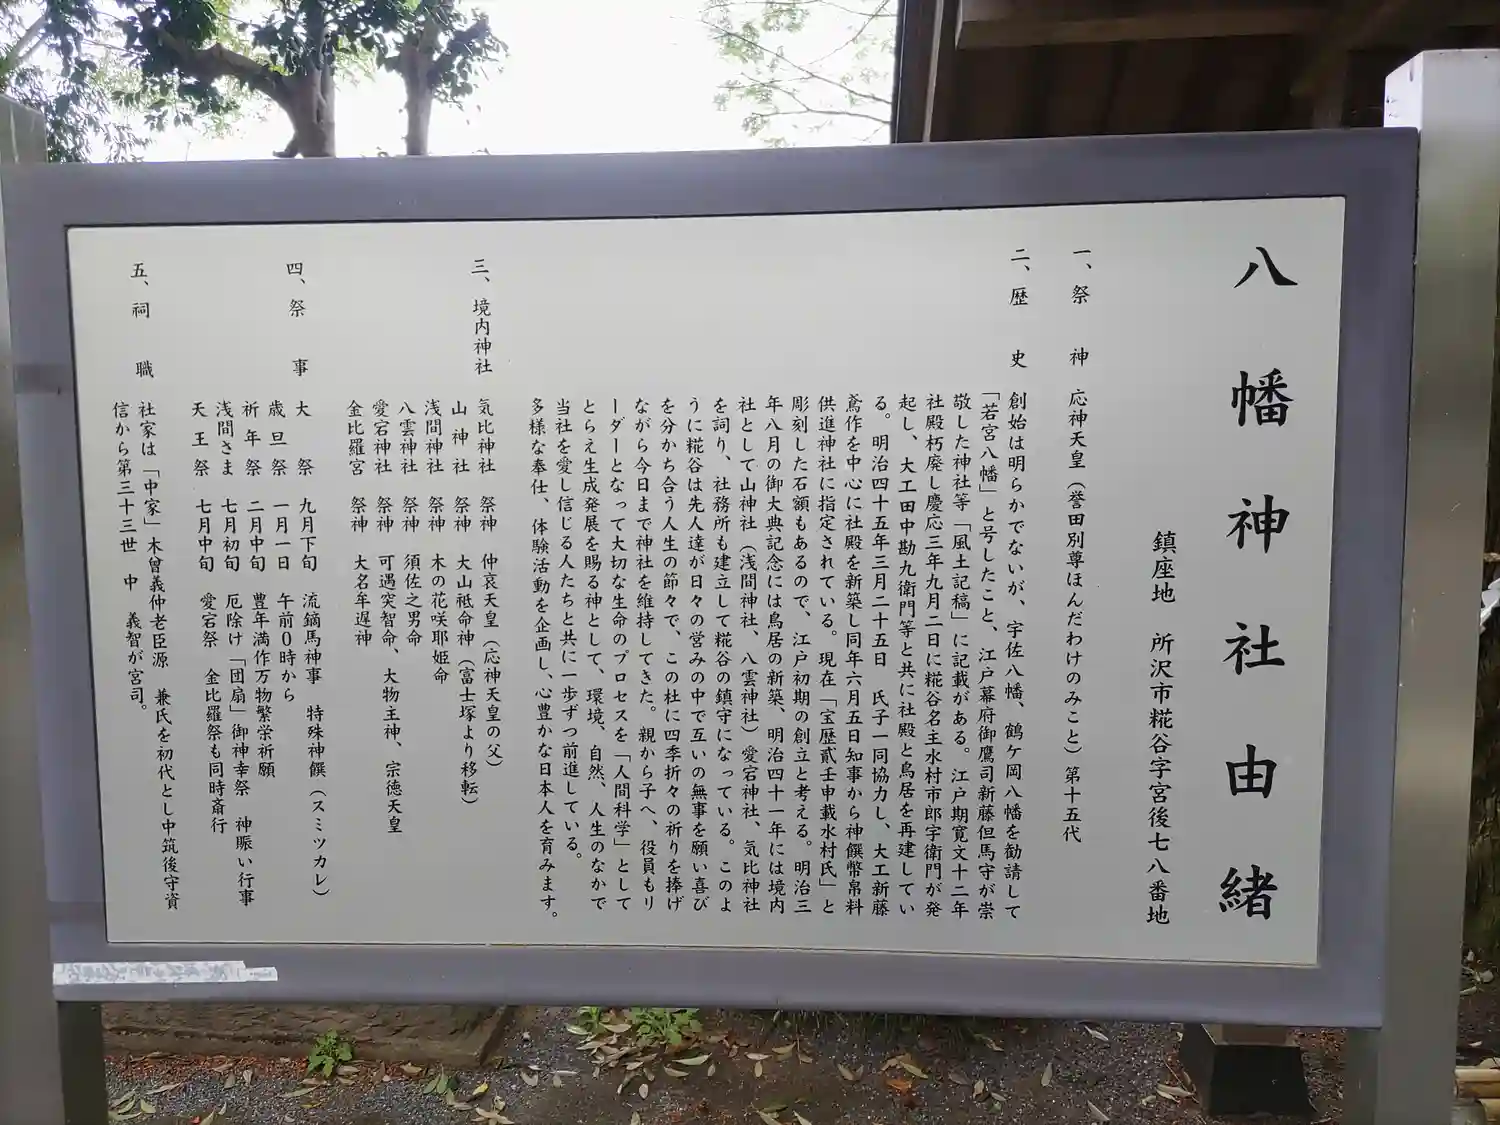 八幡神社由緒
鎮座地　所沢市糀谷字宮後七八番地
一、祭　神　応神天皇（誉田別尊ほんだわけのみこと）第十五代
二、歴　史　創始は明らかでないが、宇佐八幡、鶴ケ岡八幡を勧請して
「若宮八幡」と号したこと、江戸幕府御鷹司新藤但馬守が崇
敬した神社等「風土記稿」に記載がある。江戸期寛文十二年
社殿朽廃し慶応三年九月二日に糀谷名主水村市郎宇衛門が発
起し、大工田中勘九衛門等と共に社殿と鳥居を再建してい
る。明治四十五年三月二十五日　氏子一同協力し、大工新藤
鳶作を中心に社殿を新築し同年六月五日知事から神饌幣帛料
供進神社に指定されている。現在「宝歴貳壬申載水村氏」と
彫刻した石額もあるので、江戸初期の創立と考える。明治三
年八月の御大典記念には鳥居の新築、明治四十一年には境内
社として山神社（浅間神社、八雲神社）愛宕神社、気比神社
を詞り、社務所も建立して糀谷の鎮守になっている。このよ
うに糀谷は先人達が日々の営みの中で互いの無事を願い喜び
を分かち合う人生の節々で、この杜に四季折々の祈りを捧げ
ながら今日まで神社を維持してきた。親から子へ、役員もリ
ーダーとなって大切な生命のプロセスを「人間科学」として
とらえ生成発展を賜る神として、環境、自然、人生のなかで
当社を愛し信じる人たちと共に一歩ずつ前進している。
多様な奉仕、体験活動を企画し、心豊かな日本人を育みます。
三、境内神社　気比神社　祭神　仲哀天皇（応神天皇の父）
山神社　祭神　大山祗命神（富士塚より移転）
浅間神社　祭神　木の花咲耶姫命
八雲神社　祭神　須佐之男命
愛宕神社　祭神　可遇突智命、大物主神、宗徳天皇
金比羅宮　祭神　大名牟遅神
四、祭　事　大　祭　九月下旬　流鏑馬神事　特殊神饌（スミツカレ）
歳旦祭　一月一日　午前０時から
祈年祭　二月中旬　豊年満作万物繁栄祈願
浅間さま　七月初旬　厄除け「団扇」御神幸祭　神賑い行事
天王祭　七月中旬　愛宕祭　金比羅祭も同時斎行
五、祠　職　社家は「中家」木曾義仲老臣源　兼氏を初代とし中筑後守資
信から第三十三世　中　義智が宮司。